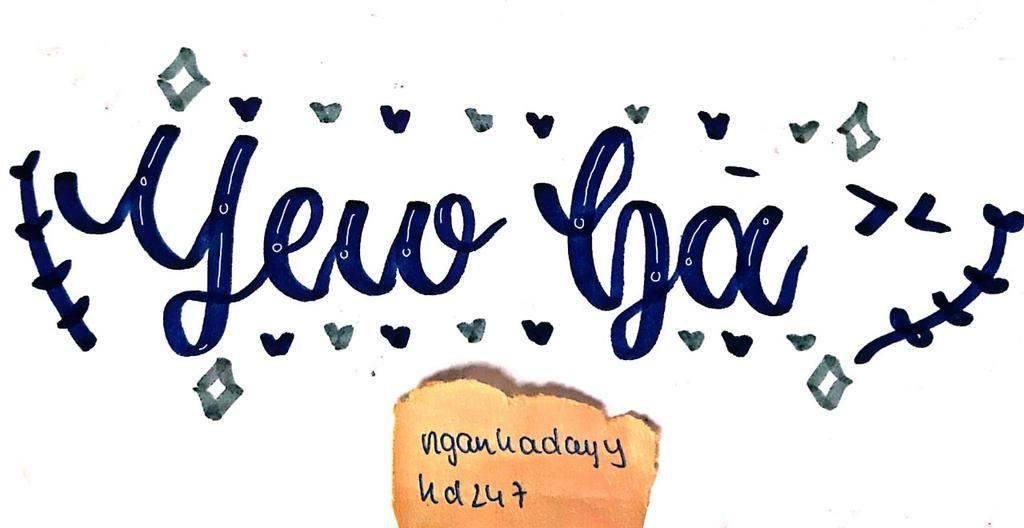 Yew Gà ><
nganhadayy
hd247